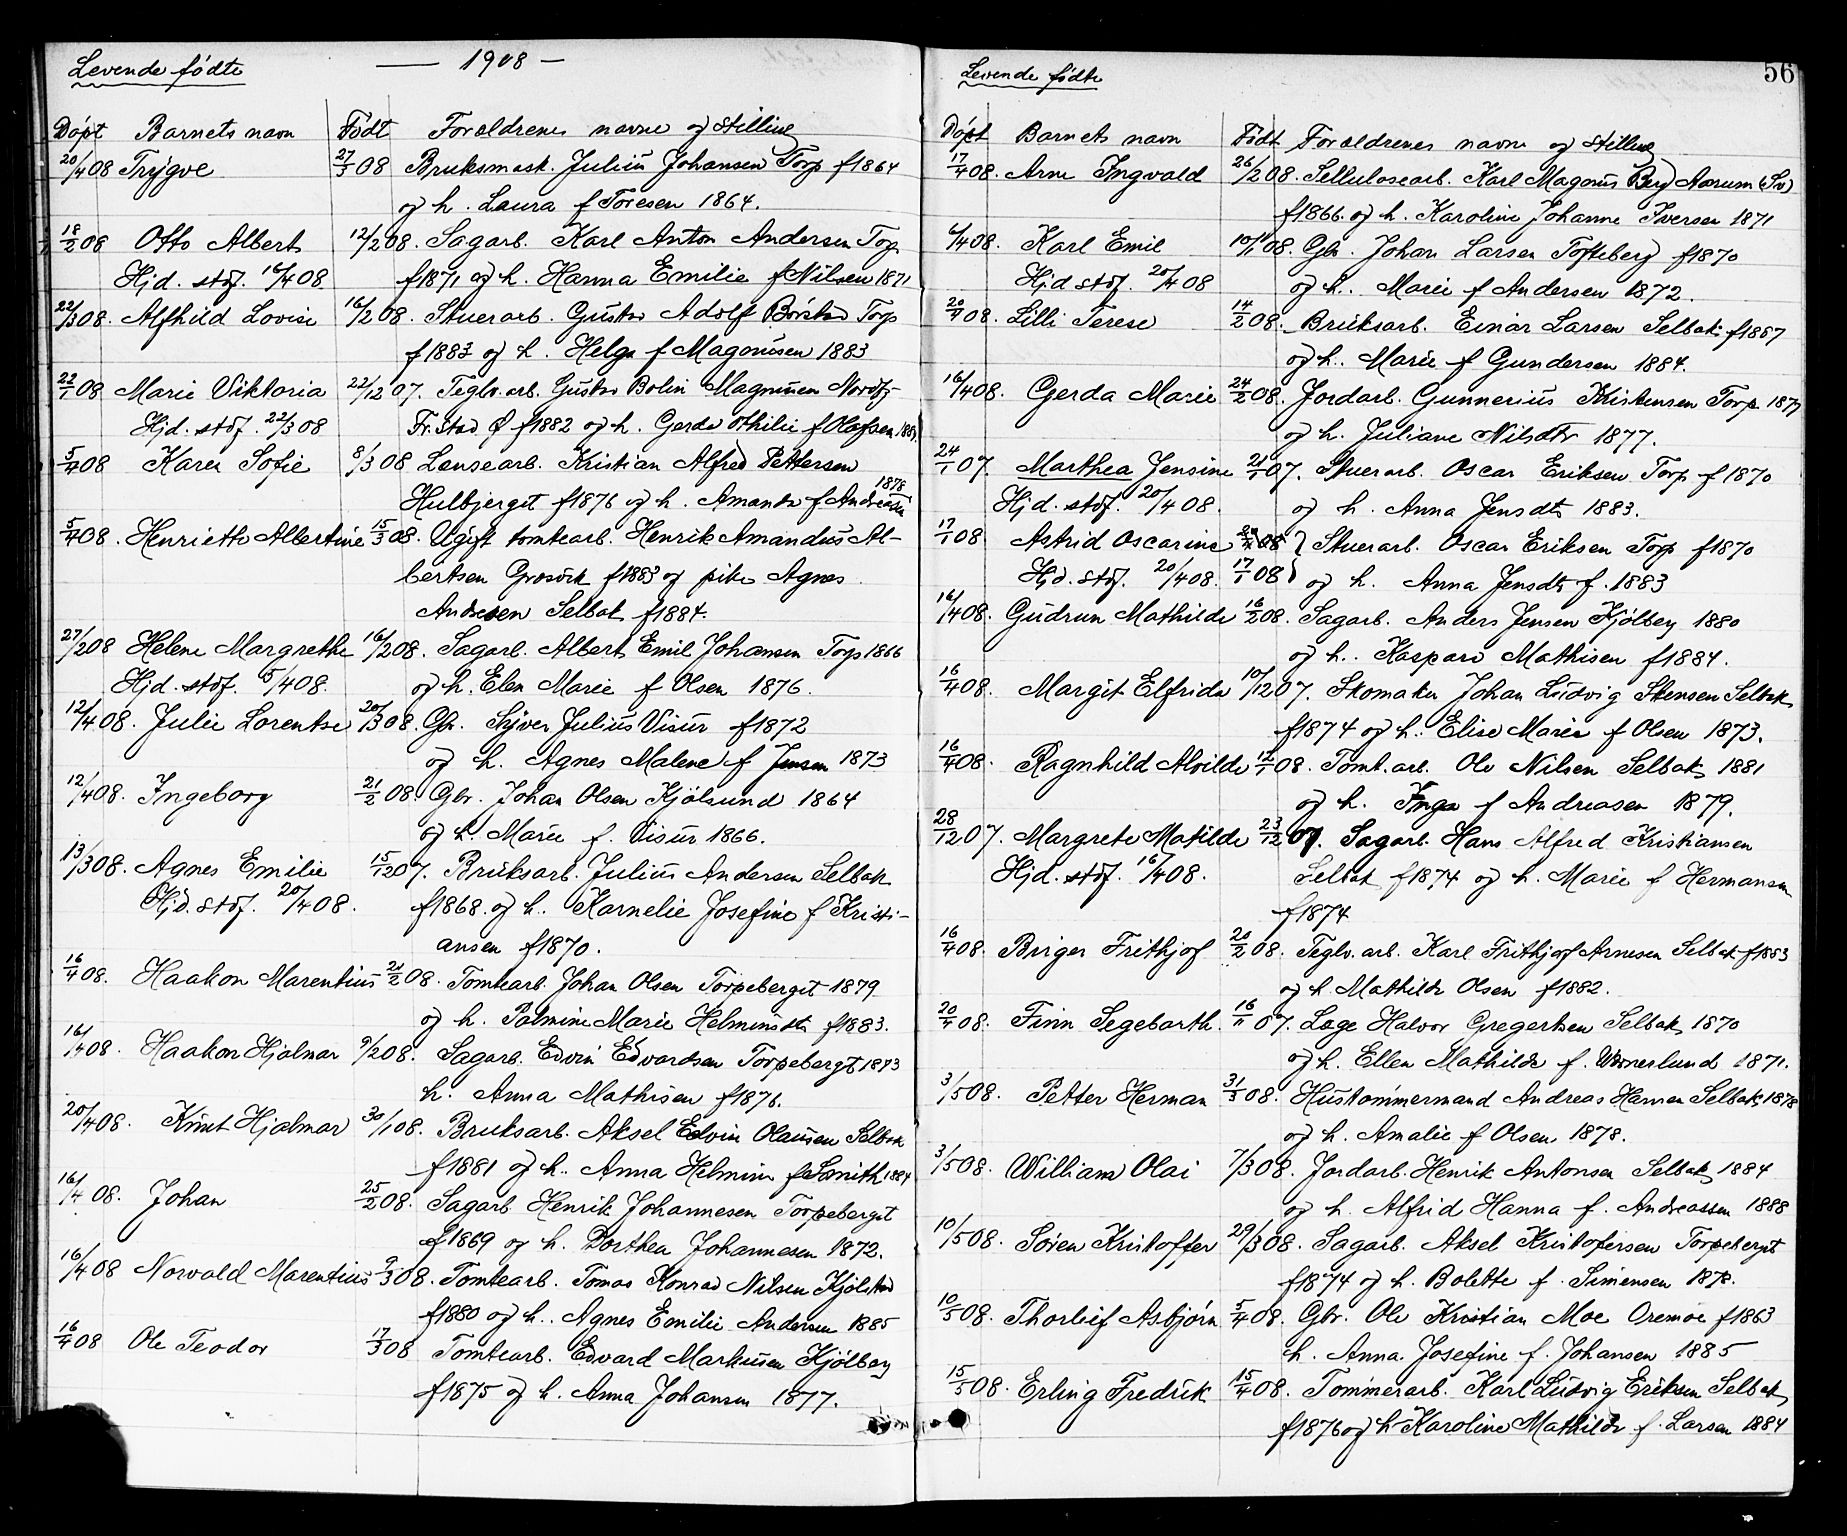 Levende fødte — 1908 —
Døpt Barnets navn Født Forældrenes navne og stilling
20/4 08 Trygve 27/3 08 Bruksmask. Julius Johansen Torp f 1864
og h. Laura f Toresen 1864.
18/2 08 Otto Albert 12/2 08. Sagarb. Karl Anton Andersen Torp
Hjd. stdf. 16/4 08 f 1871 og h. Hanna Emilie f Nilsen 1871
22/3 08. Alfhild Lovise 16/2 08. Stuerarb. Gustav Adolf Børstad Torp
f 1883 og h. Helga f Magnussen 1883
22/1 08 Marie Viktoria 22/12 07. Teglv.arb. Gustav Bolin Magnussen
Hjd. stdf. 22/3 08 Fr.stad Ø f 1882 og h. Gerda Othilie f Olafsen
5/4 08 Karen Sofie 8/3 08 Lensearb. Kristian Alfred Pettersen
Hulbjerget f 1876 og h. Amanda f Andreassen 1878
5/4 08. Henriette Albertine 15/3 08. Ugift tomtearb. Henrik Amandus Al-
bertsen Grosvik f 1883 og pike Agnes
Andresen Selbak f 1884.
27/2 08 Helene Margrethe 16/2 08. Sagarb. Albert Emil Johansen Torp 1866
Hjd. stdf. 5/4 08. og h. Elen Marie f Olsen 1876.
12/4 08. Julie Lorentse 20/3 08. Gbr. Syver Julius Visur f 1872
og h. Agnes Malene f Jensen 1873
12/4 08. Ingeborg 21/2 08. Gbr. Johan Olsen Kjølsund 1864
og h. Marie f. Visur 1866.
13/3 08. Agnes Emilie 15/12 07. Bruksarb. Julius Andersen Selbak
Hjd. stdf. 20/4 08. f 1868. og h. Karnelie Josefine f Kristi-
ansen f 1870.
16/4 08. Haakon Marentius 21/2 08. Tomtearb. Johan Olsen Torpeberget 1879
og h. Palmine Marie Helmunsdt f 1883.
16/4 08. Haakon Hjalmar 9/2 08. Sagarb. Edvin Edvardsen Torpebergt 1873
h. Anna Mathisen f 1876.
20/4 08. Knut Hjalmar 30/1 08. Bruksarb. Aksel Edvin Olausen Selbak
f 1881 og h. Anna Helmine f Smith 1884
16/4 08. Johan 25/2 08. Sagarb. Henrik Johannesen Torpeberget
f 1869 og h. Dorthea Johannesen 1872.
16/4 08 Norvald Marentius 9/3 08. Tomtearb. Tomas Konrad Nilsen Kjølstad
f 1880 og h. Agnes Emilie Andersen 1885
16/4 08 Ole Teodor 17/3 08 Tomtearb. Edvard Markussen Kjølberg
f 1875 og h. Anna Johansen 1877.
Levende fødte 56
Døpt Barnets navn Født Forældrenes navn og stilling
17/4 08. Arne Ingvald 26/2 08. Sellulosearb. Karl Magnus Berg Aarum (Sv)
f 1866. og h. Karoline Johanne Iversen 1871
6/4 08. Karl Emil 10/1 08. Gbr. Johan Larsen Tofteberg f 1870
Hjd stdf. 20/4 08 og h. Marie f Andersen 1872.
20/4 08. Lilli Terese 14/2 08. Bruksarb. Einar Larsen Selbak f 1887
og h. Marie f Gundersen 1884.
16/4 08. Gerda Marie 24/2 08. Jordarb. Gunnerius Kristensen Torp 1877
og h. Juliane Nilsdtr 1877.
24/1 07. Marthea Jensine 21/1 07. Stuerarb. Oscar Eriksen Torp f 1870
Hjd. stdf. 20/4 08. og h. Anna Jensdt 1883.
17/1 08 Astrid Oscarine 08 Stuerarb. Oscar Eriksen Torp f 1870
Hjd. stdf. 20/4 08. 17/1 08 og h. Anna Jensdt f. 1883
16/4 08. Gudrun Mathilde 16/2 08. Sagarb. Anders Jensen Kjølberg 1880
og h. Kaspara Mathisen f 1884.
16/4 08. Margit Elfrida 10/12 07. Skomaker Johan Ludvig Stensen Selbak
f 1874 og h. Elise Marie f Olsen 1873.
16/4 08. Ragnhild Alvilde 12/1 08. Tomt.arb. Ole Nilsen Selbak 1881
og h. Inga f Andreasen 1879.
28/12 07. Margrete Matilde 23/12 07. Sagarb. Hans Alfred Kristiansen
Hjd. stdf. 16/4 08. Selbak f 1874 og h. Marie f Hermansen
f 1874
16/4 08. Birger Frithjof 20/2 08. Teglv.arb. Karl Frithjof Arnesen Selbak f 1883
og h Mathilde Olsen f 1882.
20/4 08. Finn Segebarth 16/11 07. Læge Halvor Gregertsen Selbak 1870
og h. Ellen Mathilde f. Wernerlund 1871.
3/5 08. Petter Herman 31/3 08. Hustømmermand Andreas Hansen Selbak 1878
og h. Amalie f Olsen 1878.
3/5 08. William Olai 7/3 08. Jordarb. Henrik Antonsen Selbak 1884
og h. Alfrid Hanna f. Andreassen 1888
10/5 08. Søren Kristoffer 29/3 08. Sagarb. Aksel Kristofersen Torpebergt
f 1874 og h. Bolette f. Simensen 1878.
10/5 08. Thorleif Asbjørn 5/4 08. Gbr. Ole Kristian Moe Oremoe f 1863
h. Anna Josefine f. Johansen 1885
15/5 08. Erling Fredrik 15/4 08. Tømmerarb. Karl Ludvig Eriksen Selbak
f 1876 og h Karoline Mathilde f. Larsen 1884